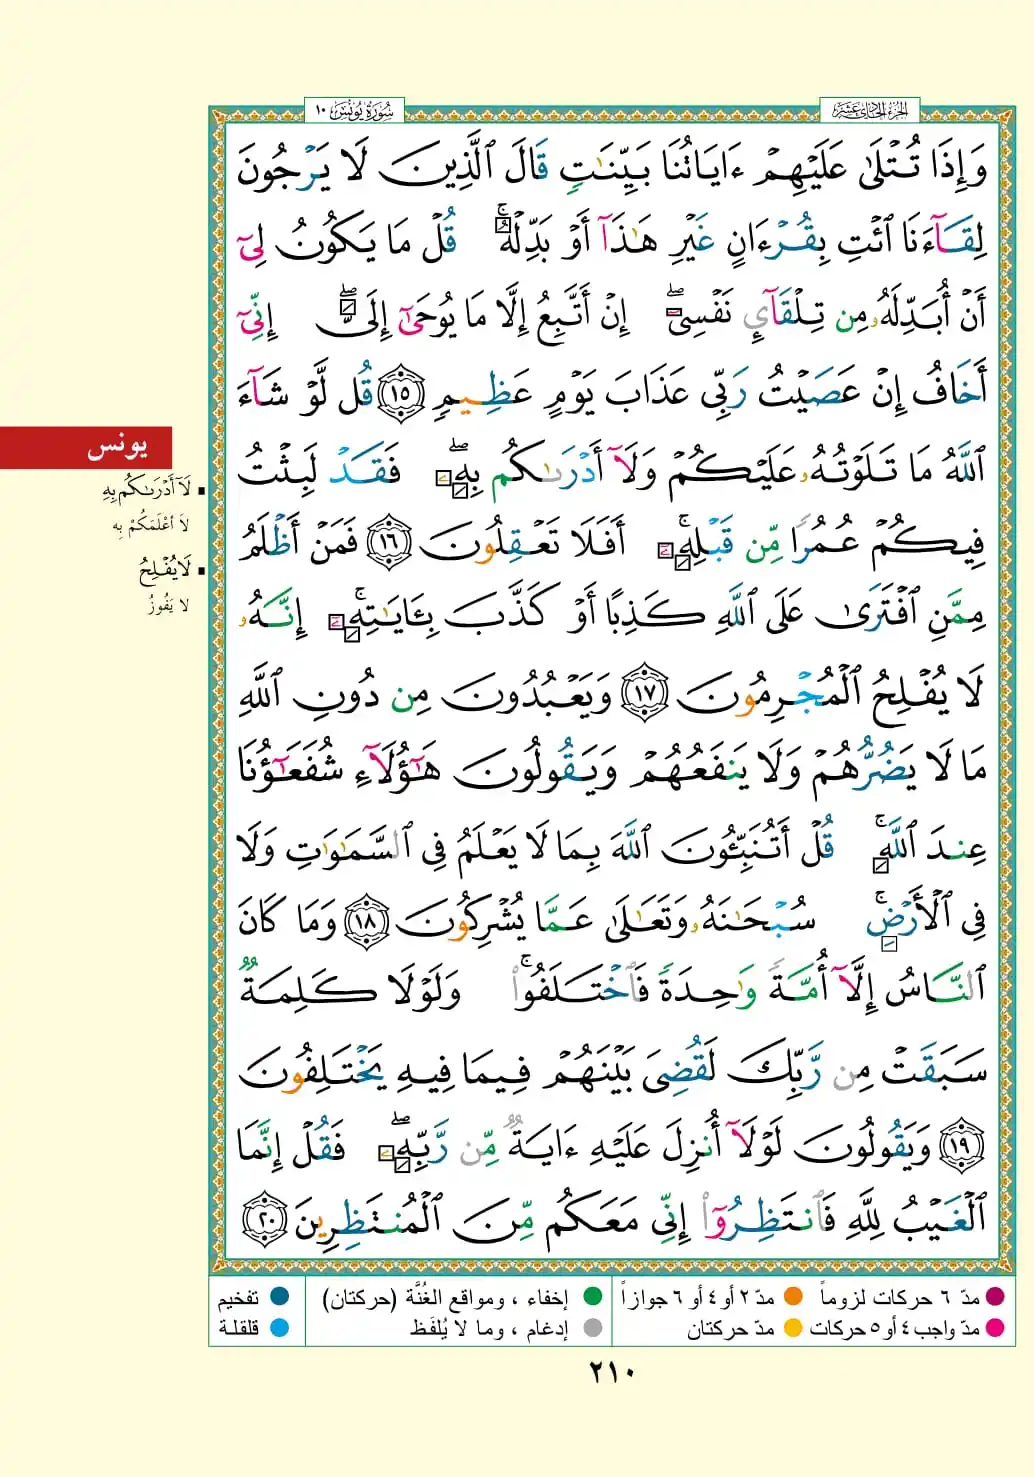 الجزء الحادي عشر
سورة يونس ١٠
وَإِذَا تُتْلَىٰ عَلَيْهِمْ ءَايَاتُنَا بَيِّنَٰتٍ قَالَ ٱلَّذِينَ لَا يَرْجُونَ
لِقَآءَنَا ٱئْتِ بِقُرْءَانٍ غَيْرِ هَٰذَآ أَوْ بَدِّلْهُ ۚ قُلْ مَا يَكُونُ لِىٓ
أَنْ أُبَدِّلَهُۥ مِن تِلْقَآئِ نَفْسِىٓ ۖ إِنْ أَتَّبِعُ إِلَّا مَا يُوحَىٰٓ إِلَىَّ ۖ إِنِّىٓ
أَخَافُ إِنْ عَصَيْتُ رَبِّى عَذَابَ يَوْمٍ عَظِيمٍ ١٥ قُل لَّوْ شَآءَ
ٱللَّهُ مَا تَلَوْتُهُۥ عَلَيْكُمْ وَلَآ أَدْرَىٰكُم بِهِۦ ۖ فَقَدْ لَبِثْتُ
فِيكُمْ عُمُرًا مِّن قَبْلِهِۦٓ ۚ أَفَلَا تَعْقِلُونَ ١٦ فَمَنْ أَظْلَمُ
مِمَّنِ ٱفْتَرَىٰ عَلَى ٱللَّهِ كَذِبًا أَوْ كَذَّبَ بِـَٔايَٰتِهِۦٓ ۚ إِنَّهُۥ
لَا يُفْلِحُ ٱلْمُجْرِمُونَ ١٧ وَيَعْبُدُونَ مِن دُونِ ٱللَّهِ
مَا لَا يَضُرُّهُمْ وَلَا يَنفَعُهُمْ وَيَقُولُونَ هَٰٓؤُلَآءِ شُفَعَٰٓؤُنَا
عِندَ ٱللَّهِ ۚ قُلْ أَتُنَبِّـُٔونَ ٱللَّهَ بِمَا لَا يَعْلَمُ فِى ٱلسَّمَٰوَٰتِ وَلَا
فِى ٱلْأَرْضِ ۚ سُبْحَٰنَهُۥ وَتَعَٰلَىٰ عَمَّا يُشْرِكُونَ ١٨ وَمَا كَانَ
ٱلنَّاسُ إِلَّآ أُمَّةً وَٰحِدَةً فَٱخْتَلَفُوا۟ ۚ وَلَوْلَا كَلِمَةٌ
سَبَقَتْ مِن رَّبِّكَ لَقُضِىَ بَيْنَهُمْ فِيمَا فِيهِ يَخْتَلِفُونَ
١٩ وَيَقُولُونَ لَوْلَآ أُنزِلَ عَلَيْهِ ءَايَةٌ مِّن رَّبِّهِۦ ۖ فَقُلْ إِنَّمَا
ٱلْغَيْبُ لِلَّهِ فَٱنتَظِرُوٓا۟ إِنِّى مَعَكُم مِّنَ ٱلْمُنتَظِرِينَ ٢٠
يونس
لَآ أَدْرَىٰكُم بِهِ
لا أَعْلَمَكُمْ بِه
لَا يُفْلِحُ
لا يَفُوزُ
مدّ ٦ حركات لزوماً
مدّ ٢ أو ٤ أو ٦ جوازاً
إخفاء ، ومواقع الغُنَّة (حركتان)
تفخيم
مدّ واجب ٤ أو ٥ حركات
مدّ حركتان
إدغام ، وما لا يُلفَظ
قلقلة
٢١٠